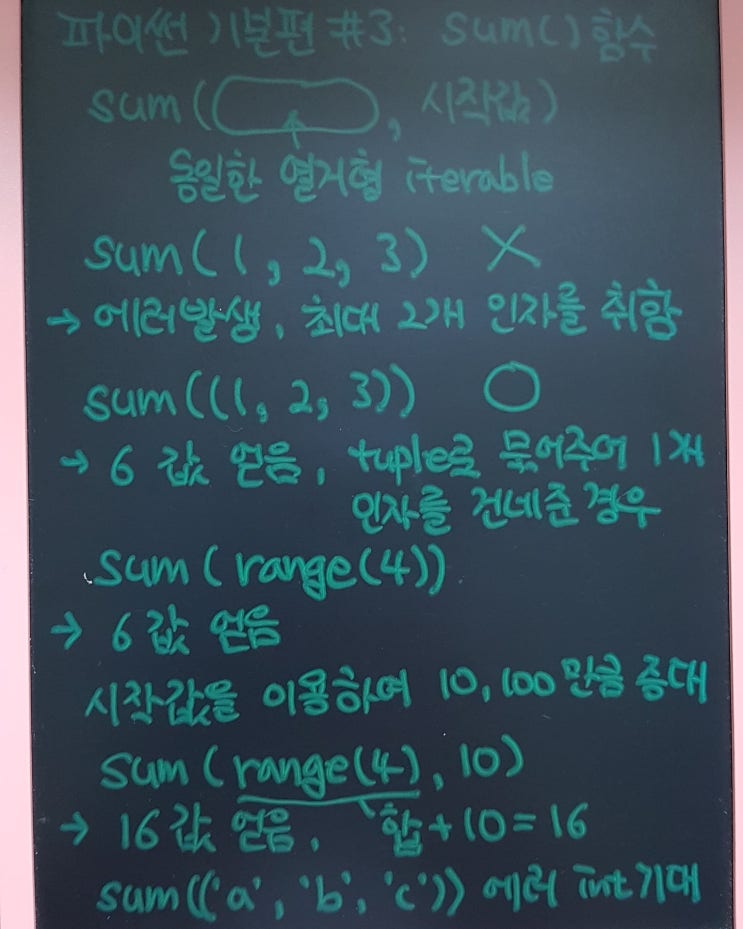 파이썬 기본편 #3: sum() 함수
sum( , 시작값)
동일한 열거형 iterable
sum(1, 2, 3) X
→ 에러발생, 최대 2개 인자를 취함
sum((1, 2, 3)) O
→ 6 값 얻음, tuple로 묶어주어 1개
인자를 건네준 경우
sum(range(4))
→ 6 값 얻음
시작값을 이용하여 10, 100만큼 증대
sum(range(4), 10)
→ 16 값 얻음, 합+10=16
sum(('a', 'b', 'c')) 에러 int 기대